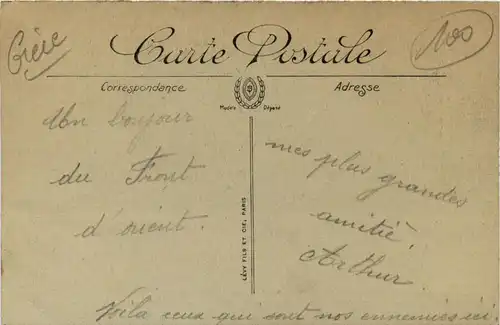 Grèce
100
Carte Postale
Correspondance
Adresse
Modèle Déposé
Un bonjour
du Front
d'orient.
LÉVY FILS ET CIE, PARIS
mes plus grandes
amitié.
Arthur.
Voilà ceux qui sont nos ennemies ici.